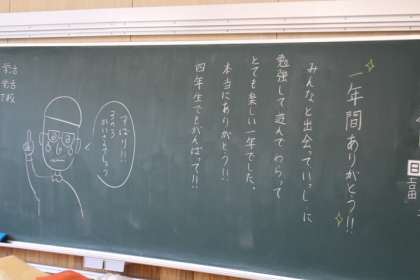 一年間ありがとう!!
みんなと出会っていっしょに
勉強して遊んでわらって
とても楽しい一年でした。
本当にありがとう!!
四年生でもがんばって!!
ずばり!!
日